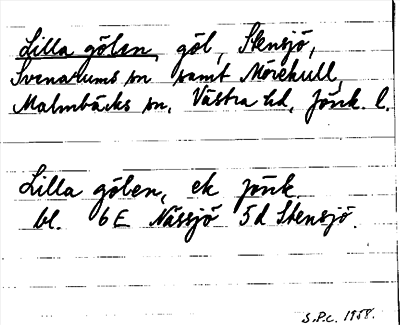 Lilla gölen, göl, Stensjö,
Svenarums sn samt Mörekull,
Malmbäcks sn, Västra hd, Jönk. l.
Lilla gölen, ek Jönk.
bl. 6E Nässjö 5d Stensjö.
S.P.C. 1958.